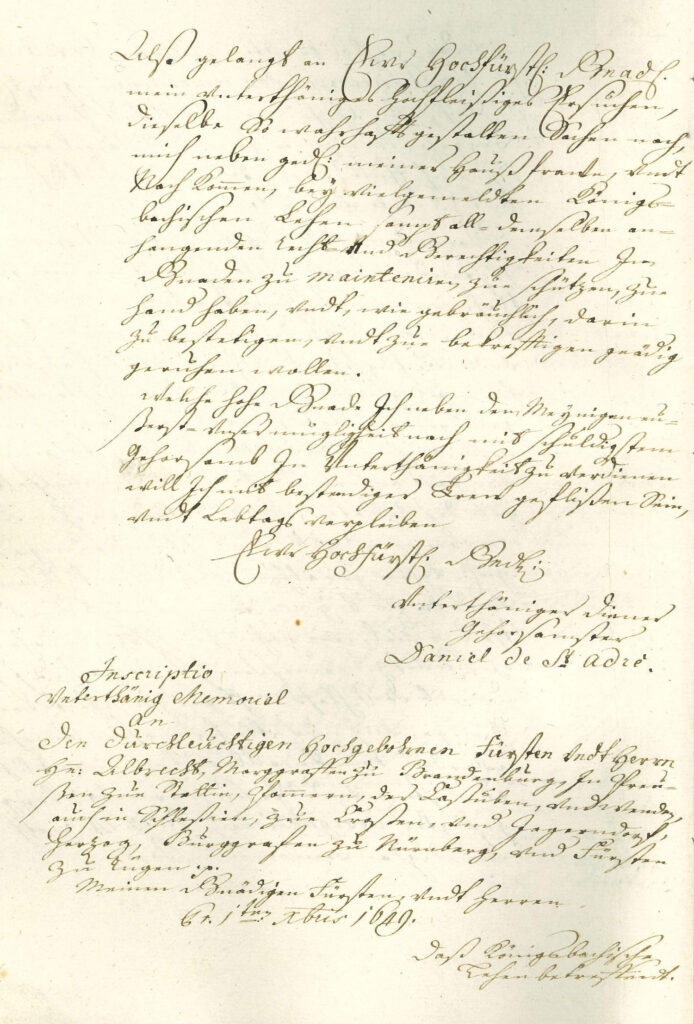 Alß gelangt an Ewr Hochfürstl: Gnad.
mein vnterthäniges hochfleißiges Ersuchen,
dieselbe So wahrhafft gestalten Sachen nach,
mich neben ged: meiner Haußfrawe, vndt
Nach Kommen, bey vielgemeldten Königs-
bachischen Lehen sampt all demselben an-
hangenden Recht- vnd Gerechtigkeiten In
Gnaden zu mainteniren, zue schützen, zue
hand haben, vndt, wie gebräuchlich, darin
zu bestetigen, vndt zue bekrefftigen gnädig
geruhen wollen.
Welche hohe Gnade Ich neben dem Meynigen eu-
ßerst- vnser mugligkeit nach mit schuldigstem
Gehorsamb In Vnterthänigkeit zu verdienen
will Ich mit bestendiger Trew geflißen Sein,
vndt Lebtags verpleiben
Ewr Hochfürstl. Gndl:
Vnterthäniger diener
Gehorsamster
Daniel de St Adré.
Inscriptio
Vnterthänig Memorial
an
Den Durchleüchtigen Hochgebohrnen Fürsten vndt Herrn
Hn: Albrecht, Marggraffen zu Brandenburg, In Preu-
ßen zue Stettin, Pommern, der Caßuben, vnd Wenden,
auch in Schleßien, zue Croßen, vnd Jägerndorf,
Herzog, Burggrafen zu Nürnberg, vnd Fürsten
zu Rügen p.
Meinen Gnädigen Fürsten, vndt Herren
Pr. 1ten Xbris 1649.
Daß Königsbachische
Lehen betreffendt.